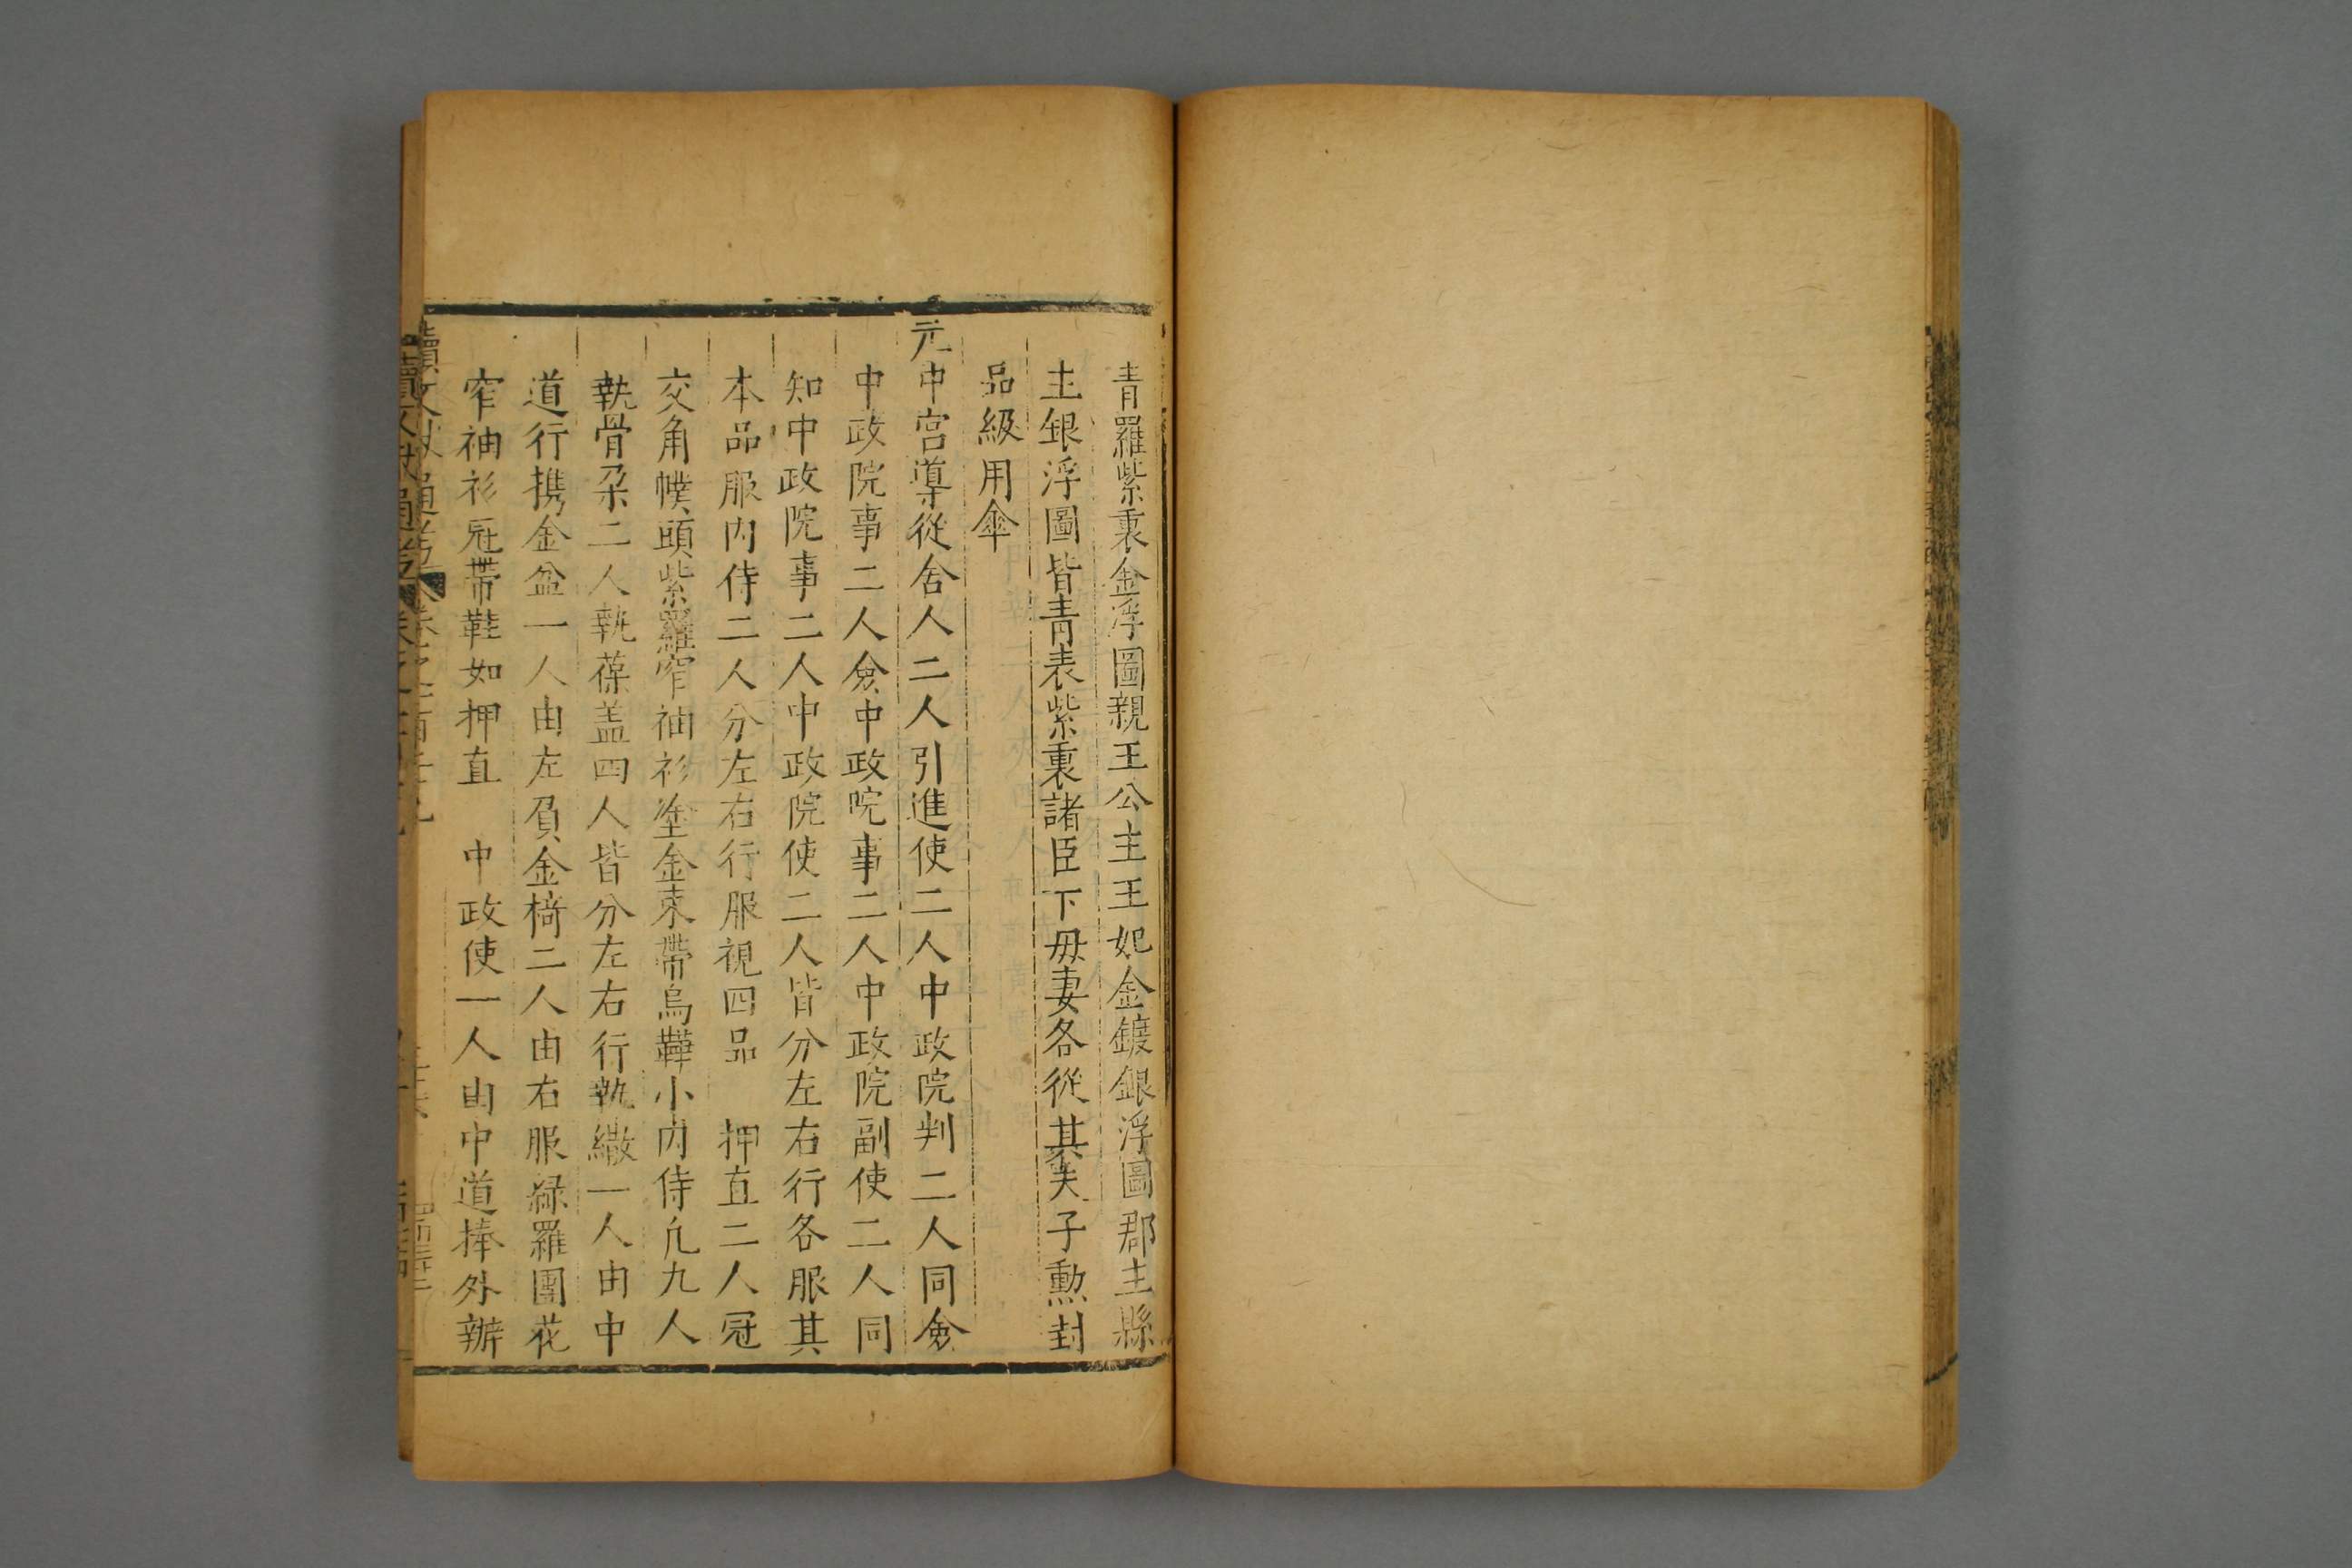 青羅紫裏金浮圖親王公主王妃金鍍銀浮圖郡主縣
主銀浮圖皆青表紫裏諸臣下母妻各從其夫子勲封
品級用傘
元中宮導從舍人二人引進使二人中政院判二人同僉
中政院事二人僉中政院事二人中政院副使二人同
知中政院事二人中政院使二人皆分左右行各服其
本品服内侍二人分左右行服視四品　押直二人冠
交角幞頭紫羅窄袖衫塗金束帶烏鞾小内侍凢九人
執骨朶二人執葆盖四人皆分左右行執繖一人由中
道行携金盆一人由左負金椅二人由右服緑羅團花
窄袖衫冠帶鞋如押直　中政使一人由中道捧外辦
續文獻通考